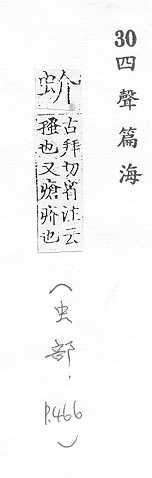 30 四聲篇海
蚧
古拜切注云
搔也又瘡疥也
(虫部.P.466)